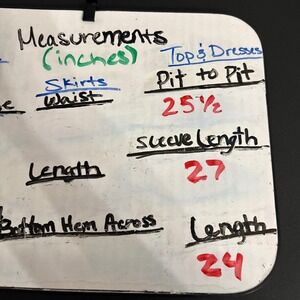 Measurements
(inches)
Tops & Dresses
Skirts
Pit to Pit
Waist
25 1/2
Sleeve Length
Length
27
Bottom Hem Across
Length
24